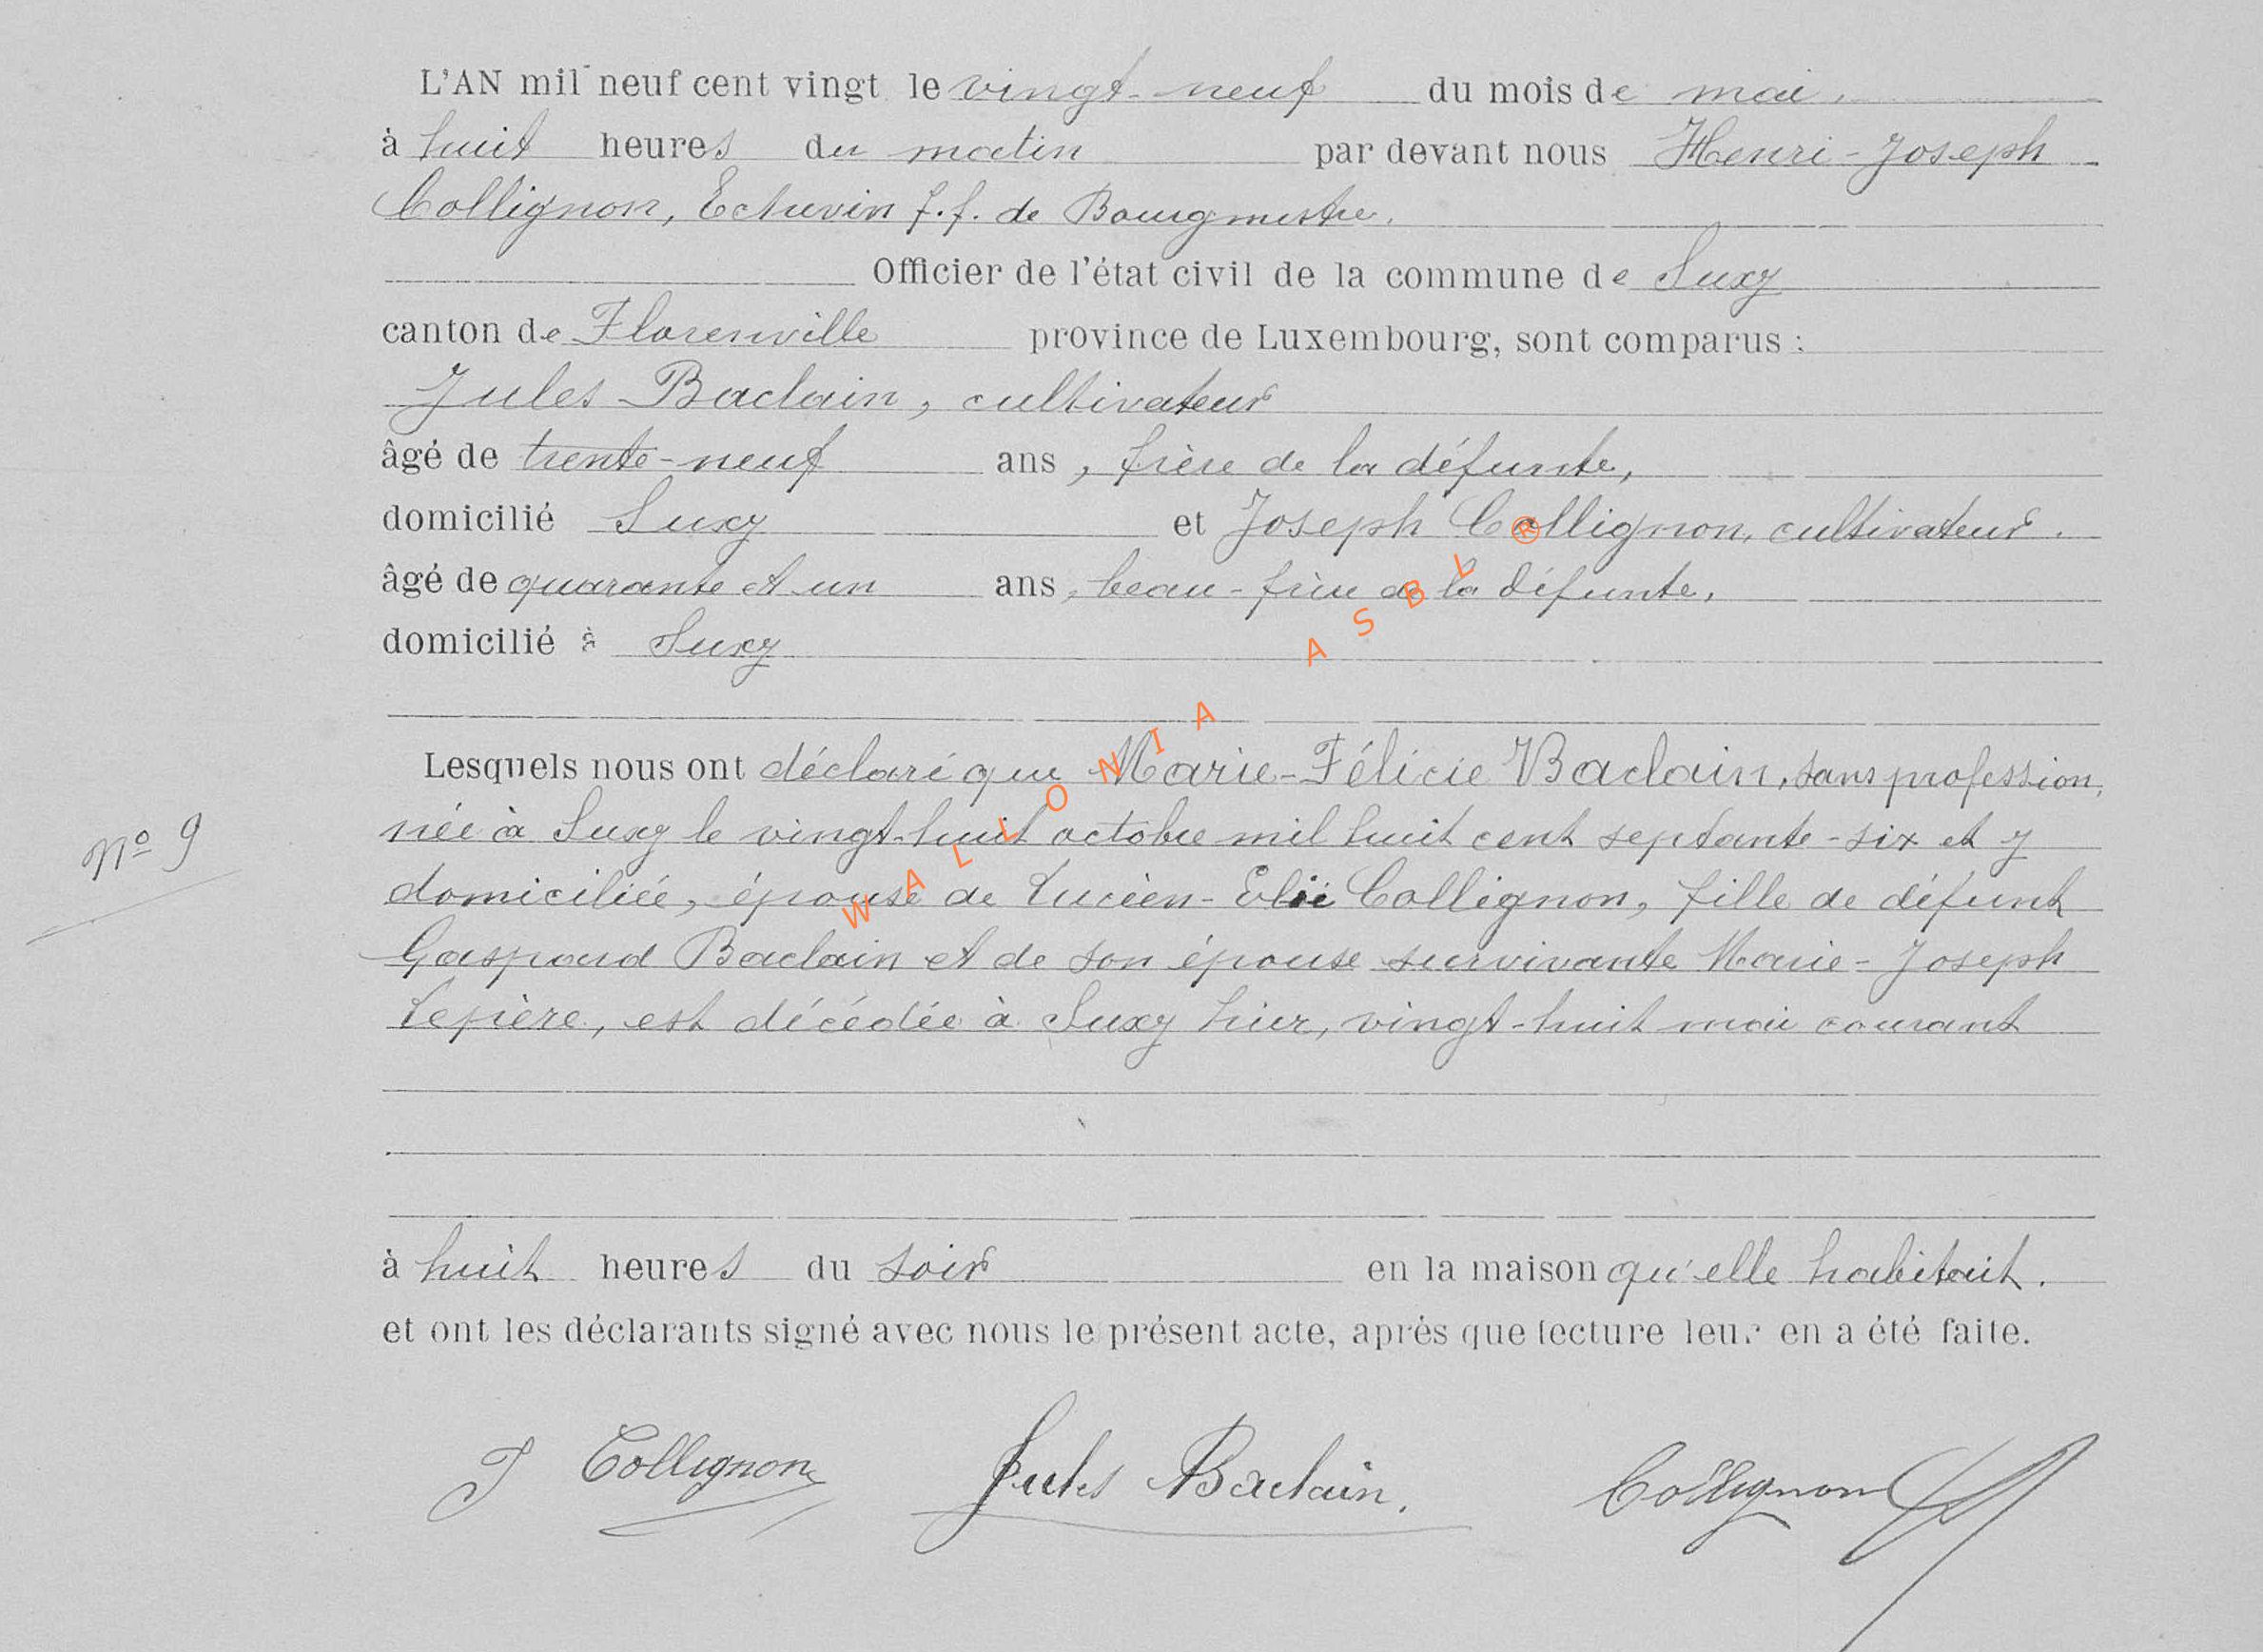 L'AN mil neuf cent vingt le vingt-neuf du mois de mai,
à huit heures du matin par devant nous Henri-Joseph
Collignon, Echevin f.f. de Bourgmestre.
Officier de l'état civil de la commune de Suxy
canton de Florenville province de Luxembourg, sont comparus :
Jules Baclain, cultivateur
âgé de trente-neuf ans, frère de la défunte,
domicilié Suxy et Joseph Collignon, cultivateur.
âgé de quarante et un ans, beau-frère de la défunte,
domicilié à Suxy
Lesquels nous ont déclaré que Marie-Félicie Baclain, sans profession,
née à Suxy le vingt-huit octobre mil huit cent septante-six et y
Nº 9
domiciliée, épouse de Lucien-Elie Collignon, fille de défunt
Gaspard Baclain et de son épouse survivante Marie-Joseph
Lepière, est décédée à Suxy hier, vingt-huit mai courant
à huit heures du soir en la maison qu'elle habitait.
et ont les déclarants signé avec nous le présent acte, après que lecture leur en a été faite.
J Collignon Jules Baclain. Collignon
WALLONIA ASBL ®